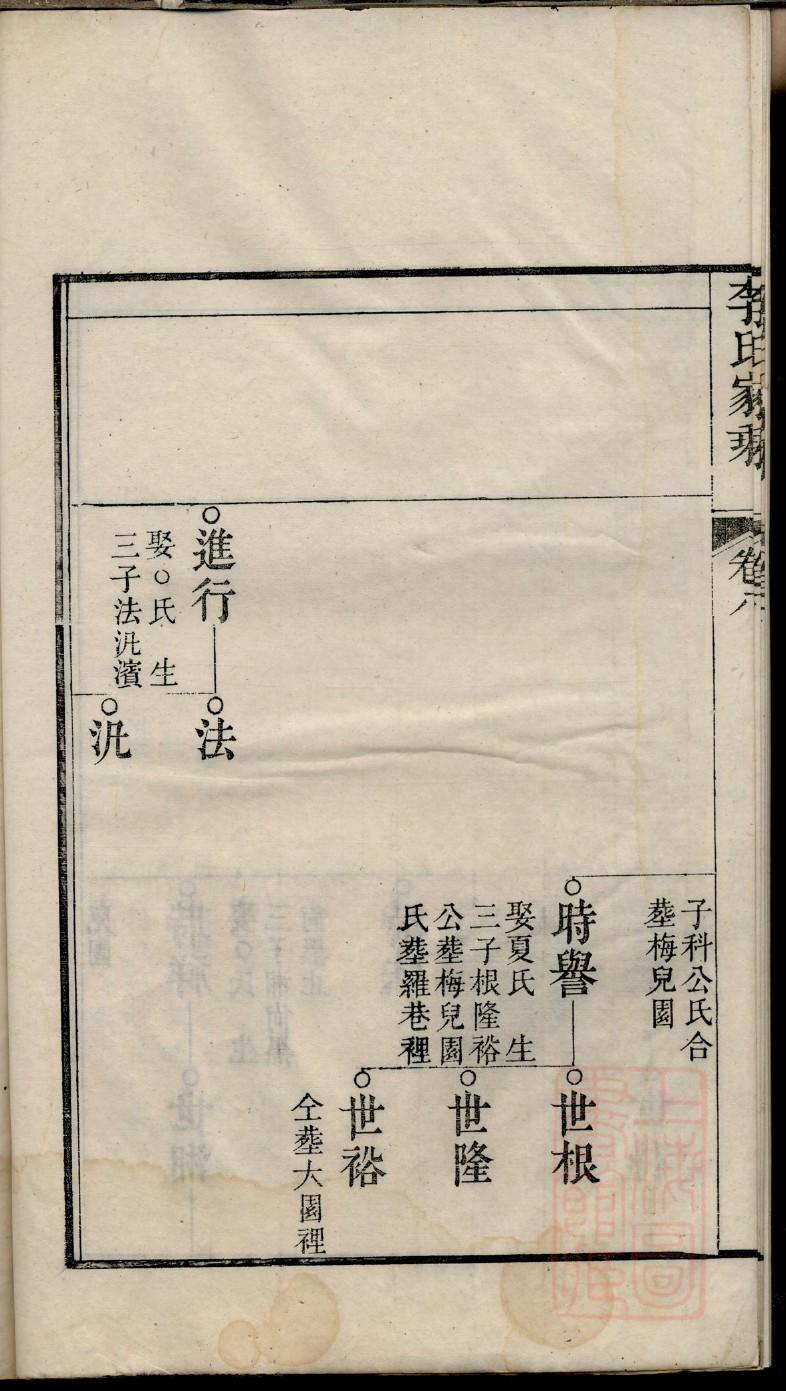 李氏家乘
卷六
子科公氏合
塟梅兒園
時譽
娶夏氏 生
三子根隆裕
公塟梅兒園
氏塟羅巷裡
世根
世隆
世裕
仝塟大園裡
進行
娶○氏 生
三子法汎濱
法
汎